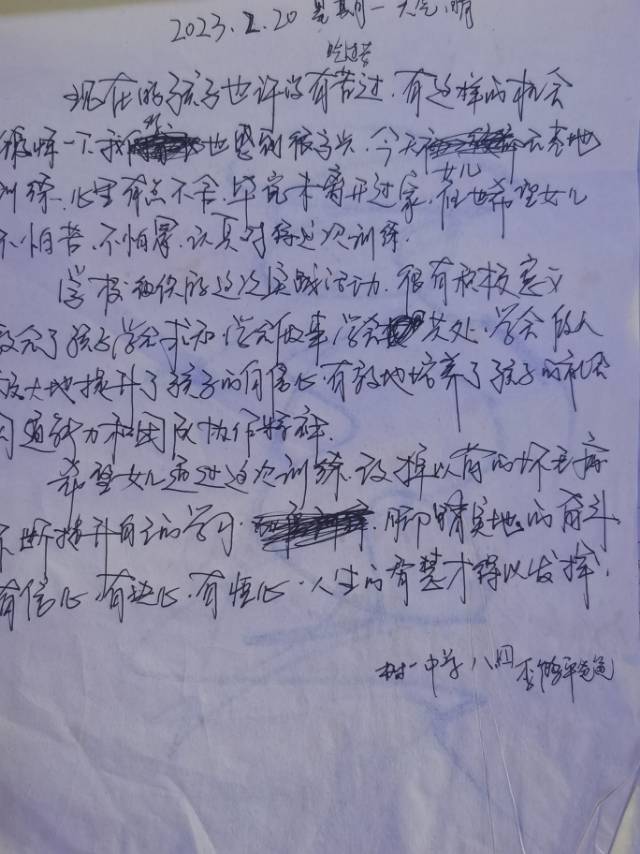 2023.2.20 星期一 天气:晴
吃过苦
现在的孩子也许没有苦过,有这样的机会
锻炼一下,我也感到很高兴,今天去基地
训练,心里有点不舍,毕竟未离开过家,但也希望女儿
女儿
不怕苦,不怕累,认真对待这次训练.
学校组织的这次实践活动,很有积极意义
教会了孩子学会求知 学会做事 学会共处,学会做人
极大地提升了孩子的自信心,有效地培养了孩子的
沟通能力和团队协作精神.
希望女儿通过这次训练,改掉以前的坏毛病
不断提升自己的学习.脚踏实地的奋斗
有信心,有决心,有恒心.人生的智慧才得以发挥.
树一中学 八四 爸爸